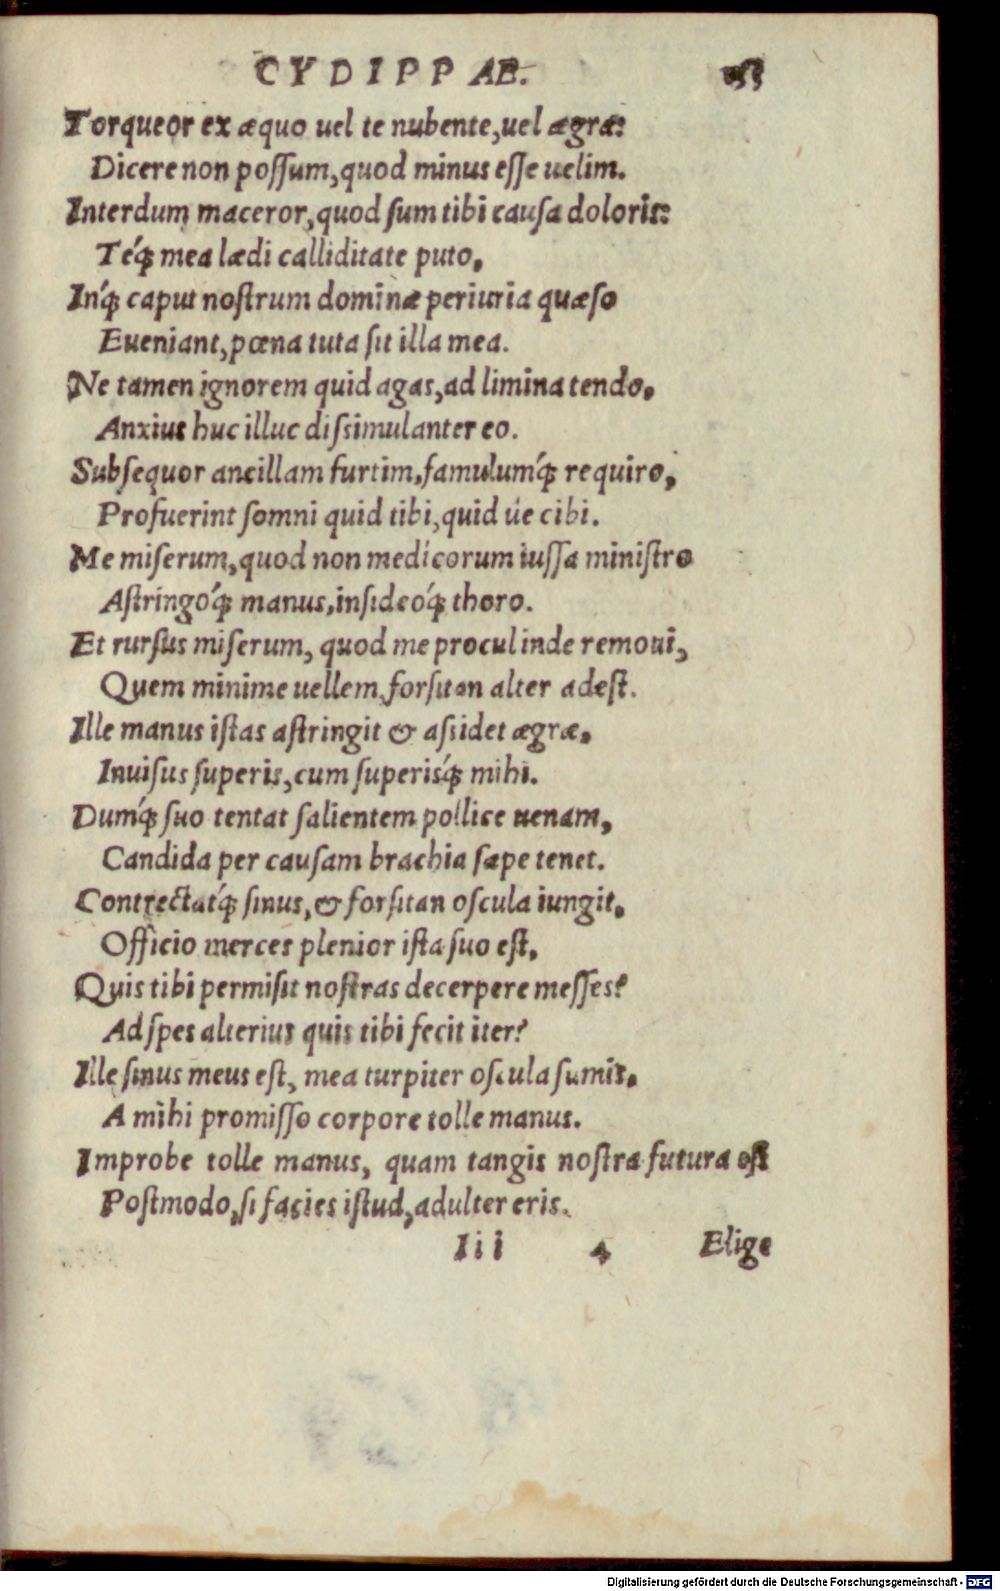 CYDIPP AE.
Torqueor ex æquo uel te nubente, uel ægra:
Dicere non possum, quod minus esse uelim.
Interdum maceror, quod sum tibi causa doloris:
Teq́; mea lædi calliditate puto,
Inq́; caput nostrum dominæ periuria quæso
Eueniant, pœna tuta sit illa mea.
Ne tamen ignorem quid agas, ad limina tendo,
Anxius huc illuc dissimulanter eo.
Subsequor ancillam furtim, famulumq́; requiro,
Profuerint somni quid tibi, quid úe cibi.
Me miserum, quod non medicorum iussa ministro
Astringoq́; manus, insideoq́; thoro.
Et rursus miserum, quod me procul inde remoui,
Quem minime uellem, forsitan alter adest.
Ille manus istas astringit & assidet ægræ,
Inuisus superis, cum superisq́; mihi.
Dumq́; suo tentat salientem pollice uenam,
Candida per causam brachia sæpe tenet.
Contrectatq́; sinus, & forsitan oscula iungit,
Officio merces plenior ista suo est,
Quis tibi permisit nostras decerpere messes?
Ad spes alterius quis tibi fecit iter?
Ille sinus meus est, mea turpiter oscula sumis,
A mihi promisso corpore tolle manus.
Improbe tolle manus, quam tangis nostra futura est
Postmodo, si facies istud, adulter eris.
Iii 4 Elige
Digitalisierung gefördert durch die Deutsche Forschungsgemeinschaft - DFG